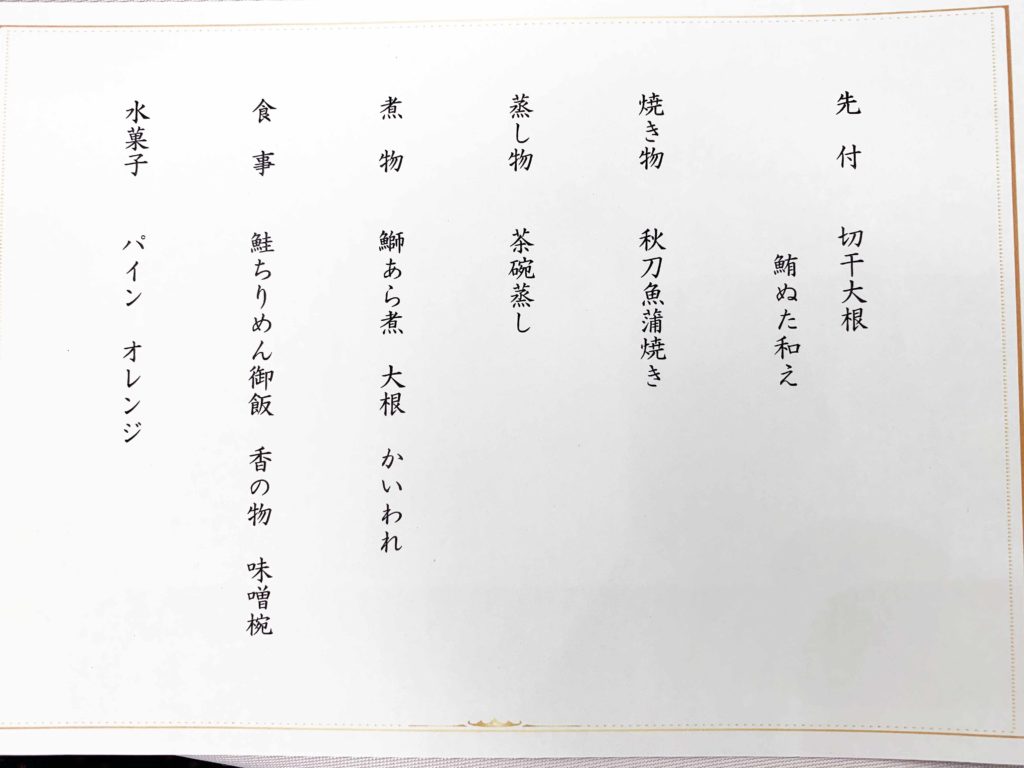 先　付　　切干大根
鮪ぬた和え
焼き物　　秋刀魚蒲焼き
蒸し物　　茶碗蒸し
煮　物　　鰤あら煮　大根　かいわれ
食　事　　鮭ちりめん御飯　香の物　味噌椀
水菓子　　パイン　オレンジ